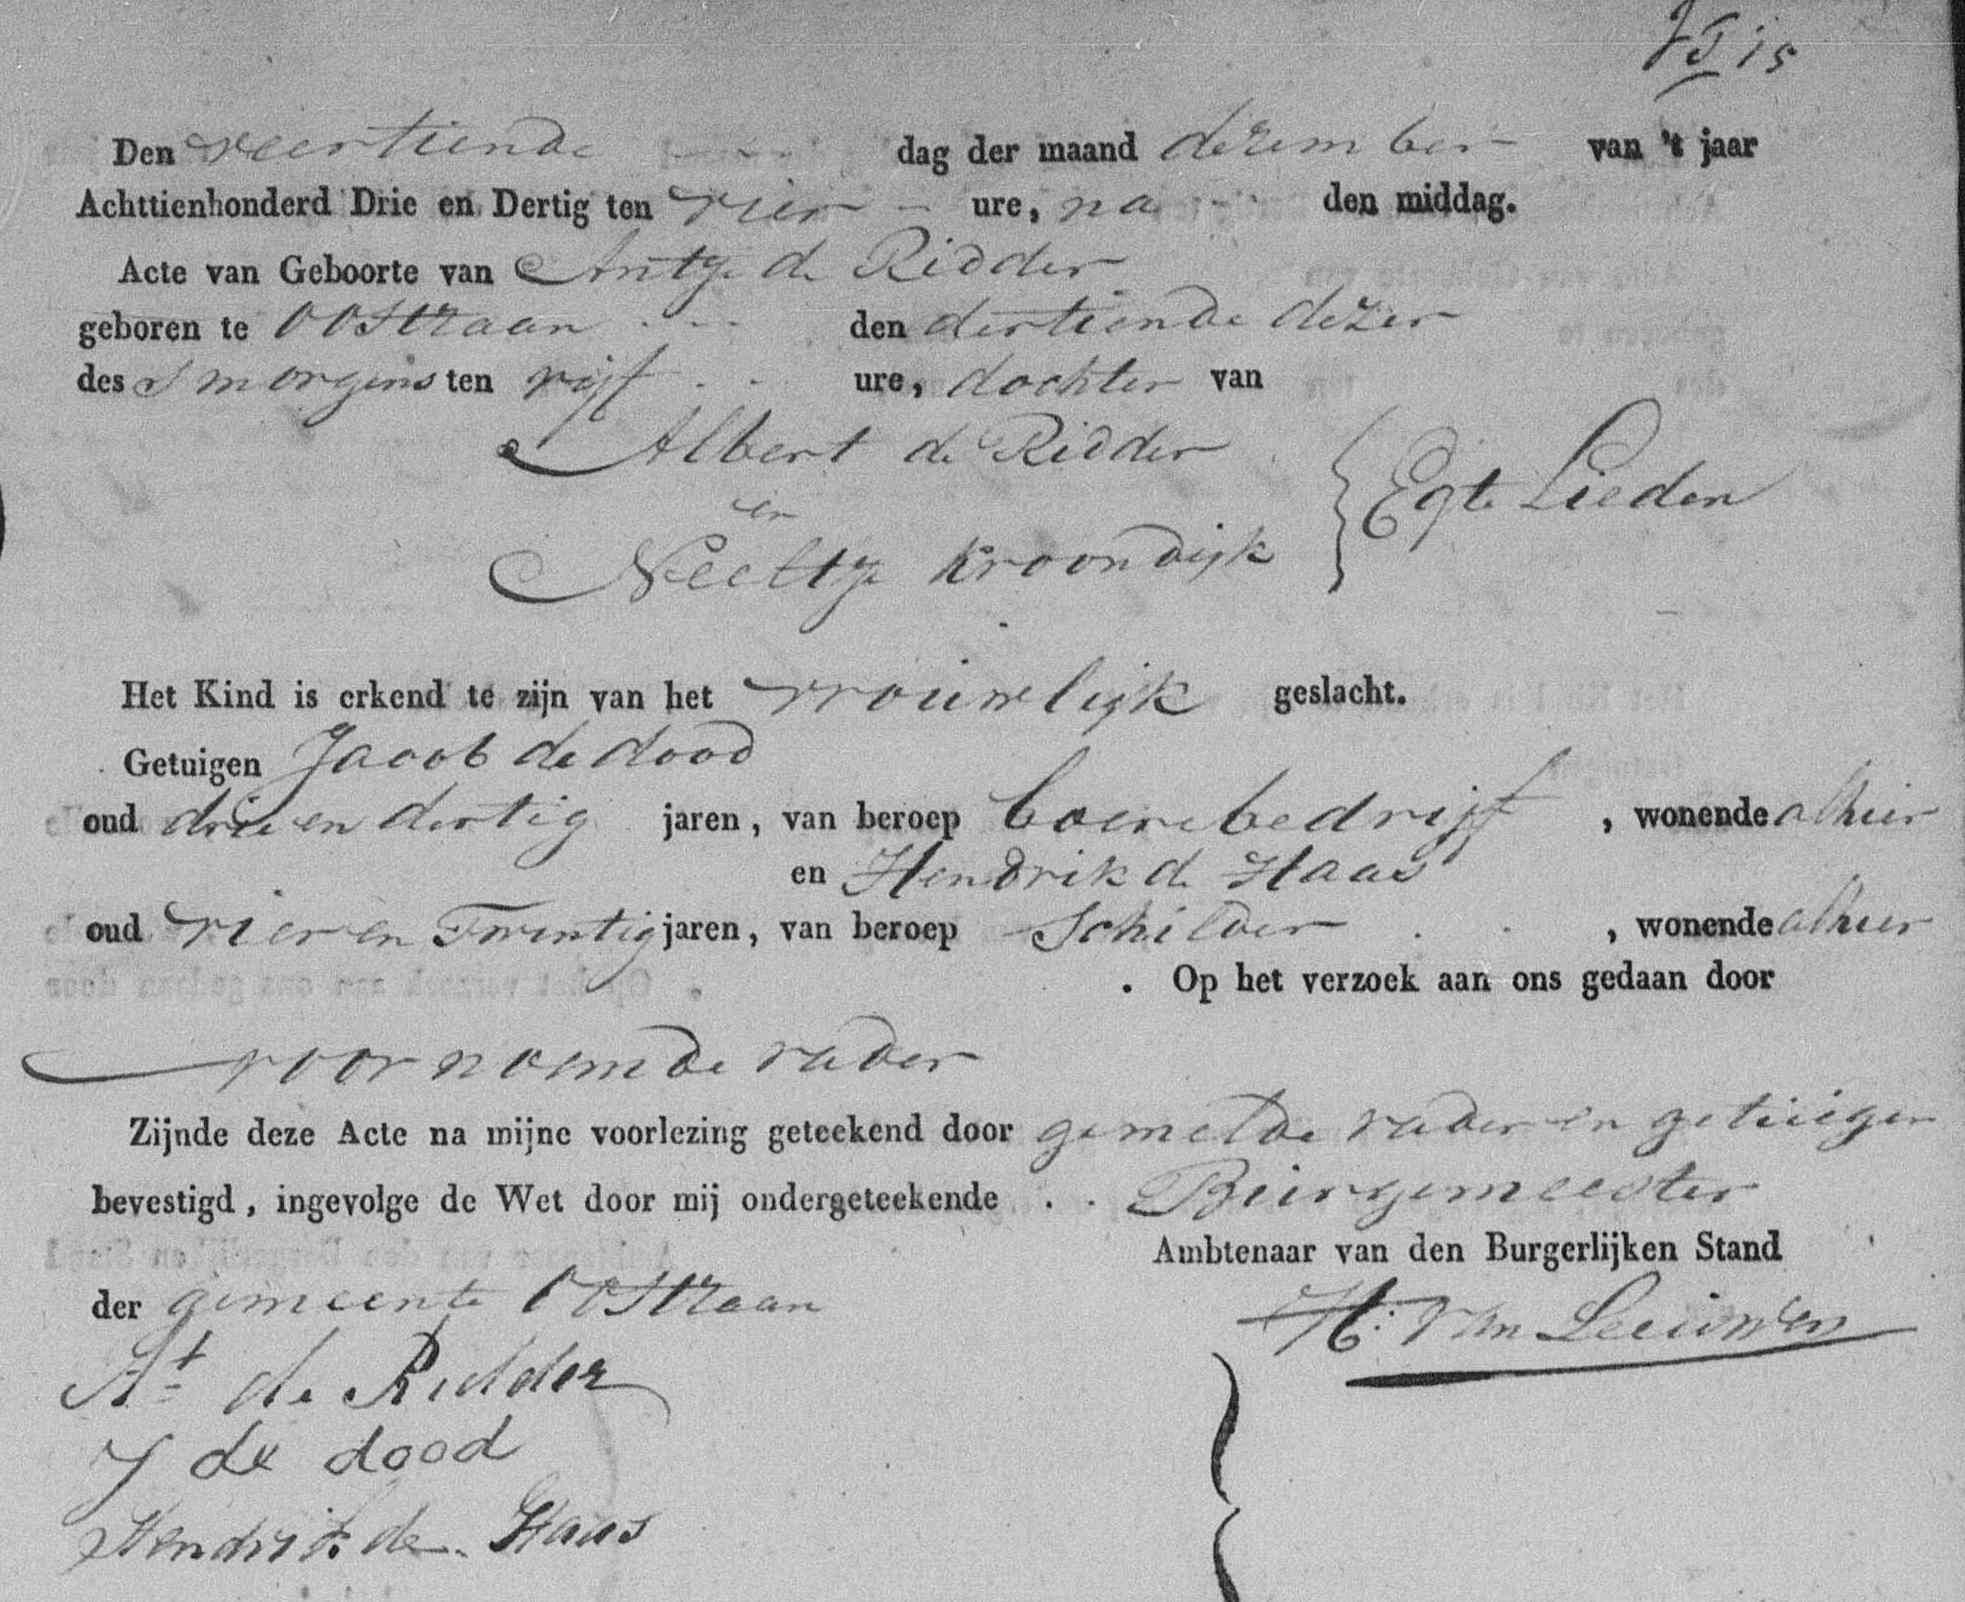 15
Den veertiende dag der maand dezember van 't jaar
Achttienhonderd Drie en Dertig ten vier ure, na den middag.
Acte van Geboorte van Antje de Ridder
geboren te Oostzaan den dertiende dezer
des smorgens ten vijf ure, dochter van
Albert de Ridder
en
Egte Lieden
Neeltje Kroondijk
Het Kind is erkend te zijn van het vrouwelijk geslacht.
Getuigen Jacob de dood
oud drie en dertig jaren, van beroep boerebedrijf, wonende alhier
en Hendrik de Haas
oud vier en Twintig jaren, van beroep Schilder, wonende alhier
. Op het verzoek aan ons gedaan door
voornoemde vader
Zijnde deze Acte na mijne voorlezing geteekend door gemelde vader en getuigen
bevestigd, ingevolge de Wet door mij ondergeteekende Burgemeester
Ambtenaar van den Burgerlijken Stand
der gemeente Oostzaan
H: van Leeuwen
At de Ridder
J de dood
Hendrik de Haas